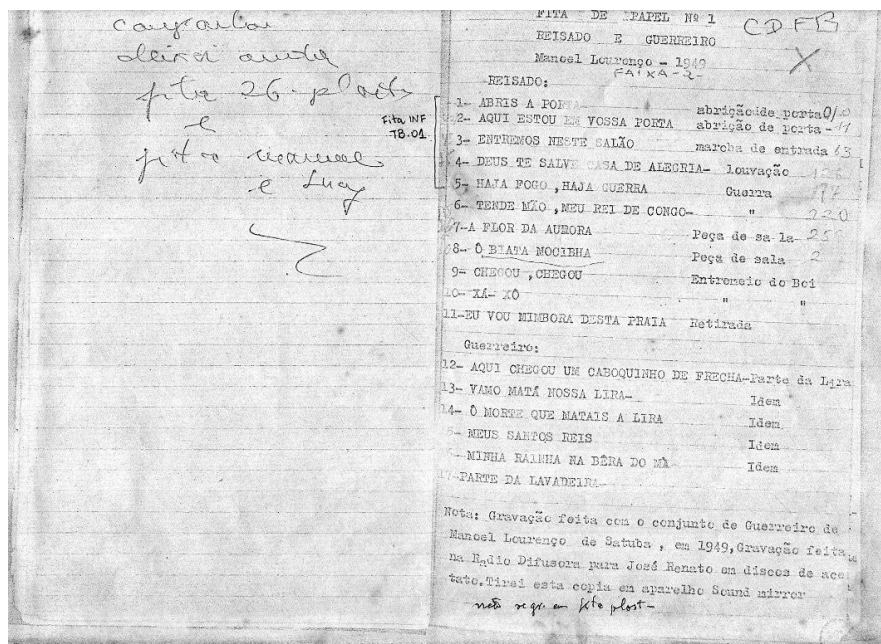 fita 26 - plast
e
e Lucy
Fita INF
TB.01
FITA DE PAPEL Nº 1 CDFB
REISADO E GUERREIRO X
Manoel Lourenço - 1949
FAIXA-2-
REISADO:
1- ABRIS A PORTA abrição de porta
2- AQUI ESTOU EM VOSSA PORTA abrição de porta -
3- ENTREMOS NESTE SALÃO marcha de entrada 63
4- DEUS TE SALVE CASA DE ALEGRIA- louvação
5- HAJA FOGO ,HAJA GUERRA Guerra
6- TENDE MÃO ,MEU REI DE CONGO- " 220
7-A FLOR DA AURORA Peça de sa la-
8- Ô BIATA MOCIBHA Peça de sala 2
9- CHEGOU ,CHEGOU Entremeio do Boi
10- XÁ- XÔ " "
11-EU VOU MIMBORA DESTA PRAIA Retirada
Guerreiro:
12- AQUI CHEGOU UM CABOQUINHO DE FRECHA-Parte da Lira
13- VAMO MATÁ NOSSA LIRA- Idem
14- Ô MORTE QUE MATAIS A LIRA Idem
5- MEUS SANTOS REIS Idem
6- MINHA RAINHA NA BÊRA DO MÀ- Idem
17-PARTE DA LAVADEIRA-
Nota: Gravação feita com o conjunto de Guerreiro de
Manoel Lourenço de Satuba , em 1949,Gravação feita
na Radio Difusora para José Renato em discos de ace
tato.Tirei esta copia em aparelho Sound mirror
fita plast-